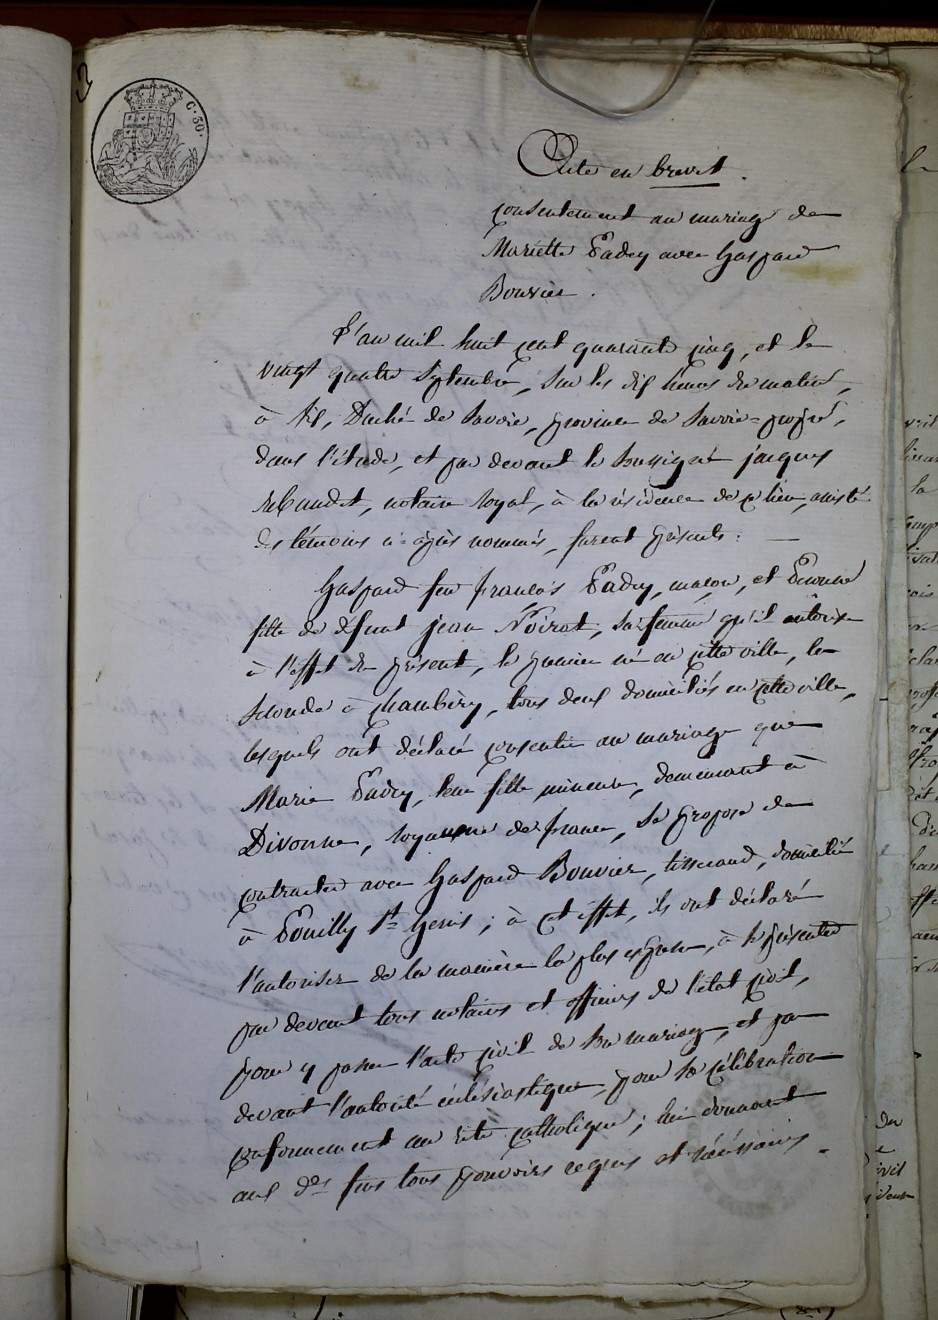 3
C. 50.
Acte en brevet.
consentement au mariage de
Mariette Padey avec Gaspard
Bouvier.
L'an mil huit cent quarante cinq, et le
vingt quatre septembre, sur les dix heures du matin,
à Aix, Duché de Savoie, province de Savoie-propre,
dans l'étude, et par devant le soussigné jacques
notaire royal, à la résidence de ce lieu, assisté
des témoins ci-après nommés, furent présents:
Gaspard feu françois Padey, maçon, et
fille de défunt jean Noirot, sa femme qu'il autorise
à l'effet du présent, le premier né en cette ville, la
seconde à Chambéry, tous deux domiciliés en cette ville,
lesquels ont déclaré consentir au mariage que
Marie Padey, leur fille mineure, demeurant à
Divonne, royaume de france, se propose de
contracter avec Gaspard Bouvier, tisserand, domicilié
à Pouilly St. Genis; à cet effet, ils ont déclaré
l'autoriser de la manière la plus expresse, à se présenter
par devant tous notaires et officiers de l'état civil,
pour y passer l'acte civil de son mariage, et par
devant l'autorité écclésiastique, pour sa célébration
conformement au rite catholique; lui donnant
aux des. fins tous pouvoirs requis et nécéssaires.